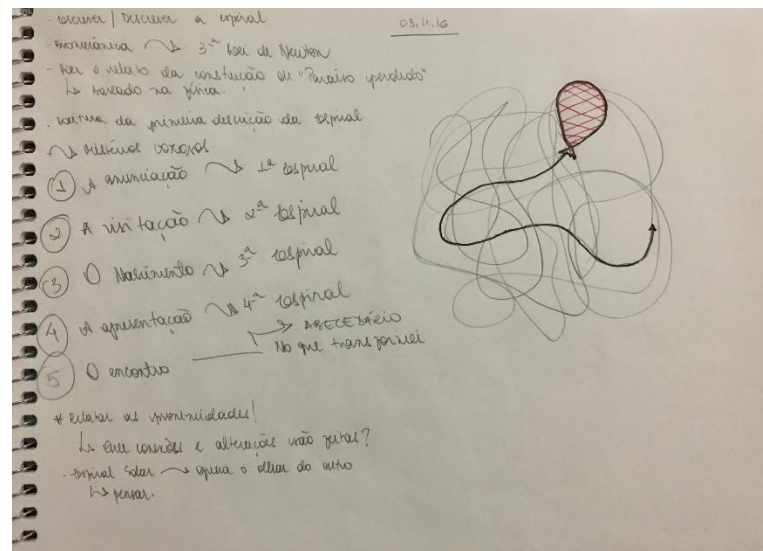 - escrever / Descrever a espiral
03.11.16
3ª Lei de Newton
- Ler o relato da construção de "Paraíso perdido"
↳ baseado na física.
- leitura da primeira descrição da espiral
↝ Mistérios gozosos
1 A anunciação ↝ 1ª espiral
2 A visitação ↝ 2ª espiral
3 O Nascimento ↝ 3ª espiral
4 A apresentação ↝ 4ª espiral
→ ABECEDÁRIO
5 O encontro No que transformei
* Relatar as proximidades!
↳ Que conexões e alterações são feitas?
- espiral solar ↝ o olhar do outro
↳ pensar.